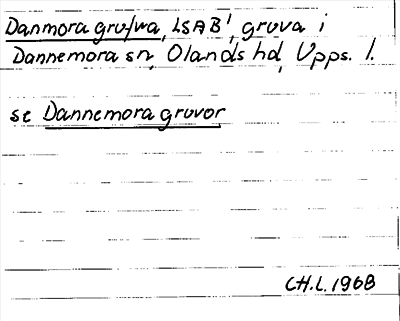 Danmora grufwa, LSAB¹, gruva i
Dannemora sn, Olands hd, Upps. l.
se Dannemora gruvor
CH.L. 1968